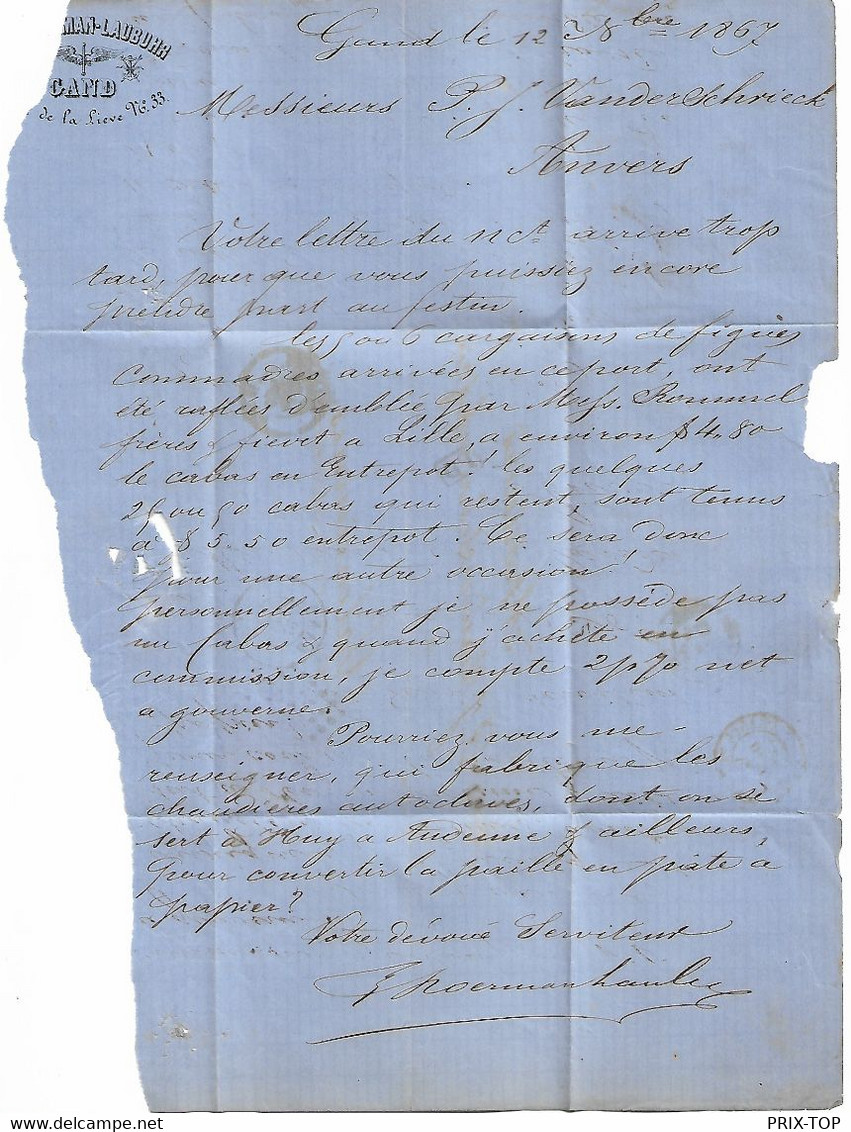 MAN-LAUBUHR
GAND
de la Lieve No. 33.
Gand le 12 Xbre 1867
Messieurs P. J. VanderSchrieck
Anvers
Votre lettre du 11 ct arrive trop
tard, pour que vous puissiez encore
prendre part au festin.
les 5 ou 6 cargaisons de figues
Commadres arrivées en ce port, ont
été raflées d'emblée par Mess. Rommel
frères & fievet a Lille, a environ $ 4.80
le cabas en Entrepot! les quelques
25 ou 50 cabas qui restent, sont tenus
a $ 5.50 entrepot. Ce sera donc
pour une autre occasion!
personnellement je ne possède pas
un Cabas & quand j'achète en
commission, je compte 2p%o net
a gouverne.
Pourriez vous me
renseigner, qui fabrique les
chaudières autoclives, dont on se
sert à Huy a Andenne & ailleurs,
pour convertir la paille en pâte à
papier?
Votre dévoué Serviteur
PRIX-TOP